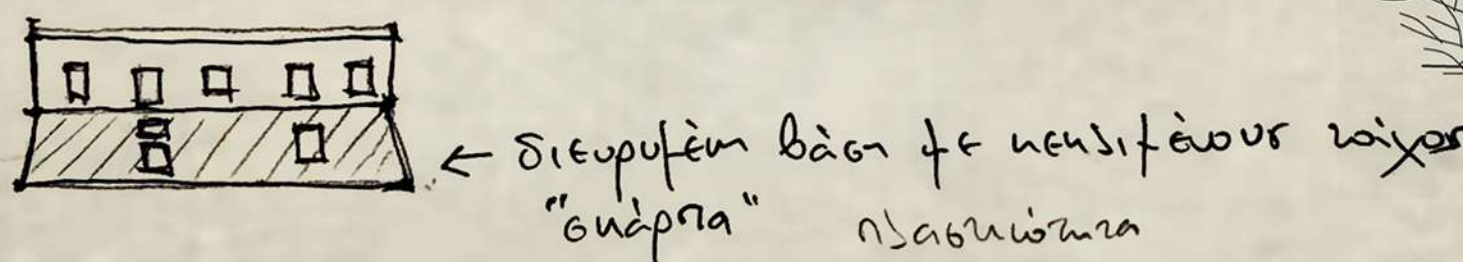 ← διευρυμένη βάση με κεκλιμένους τοίχους
"σκάρπα" πλαστικότητα